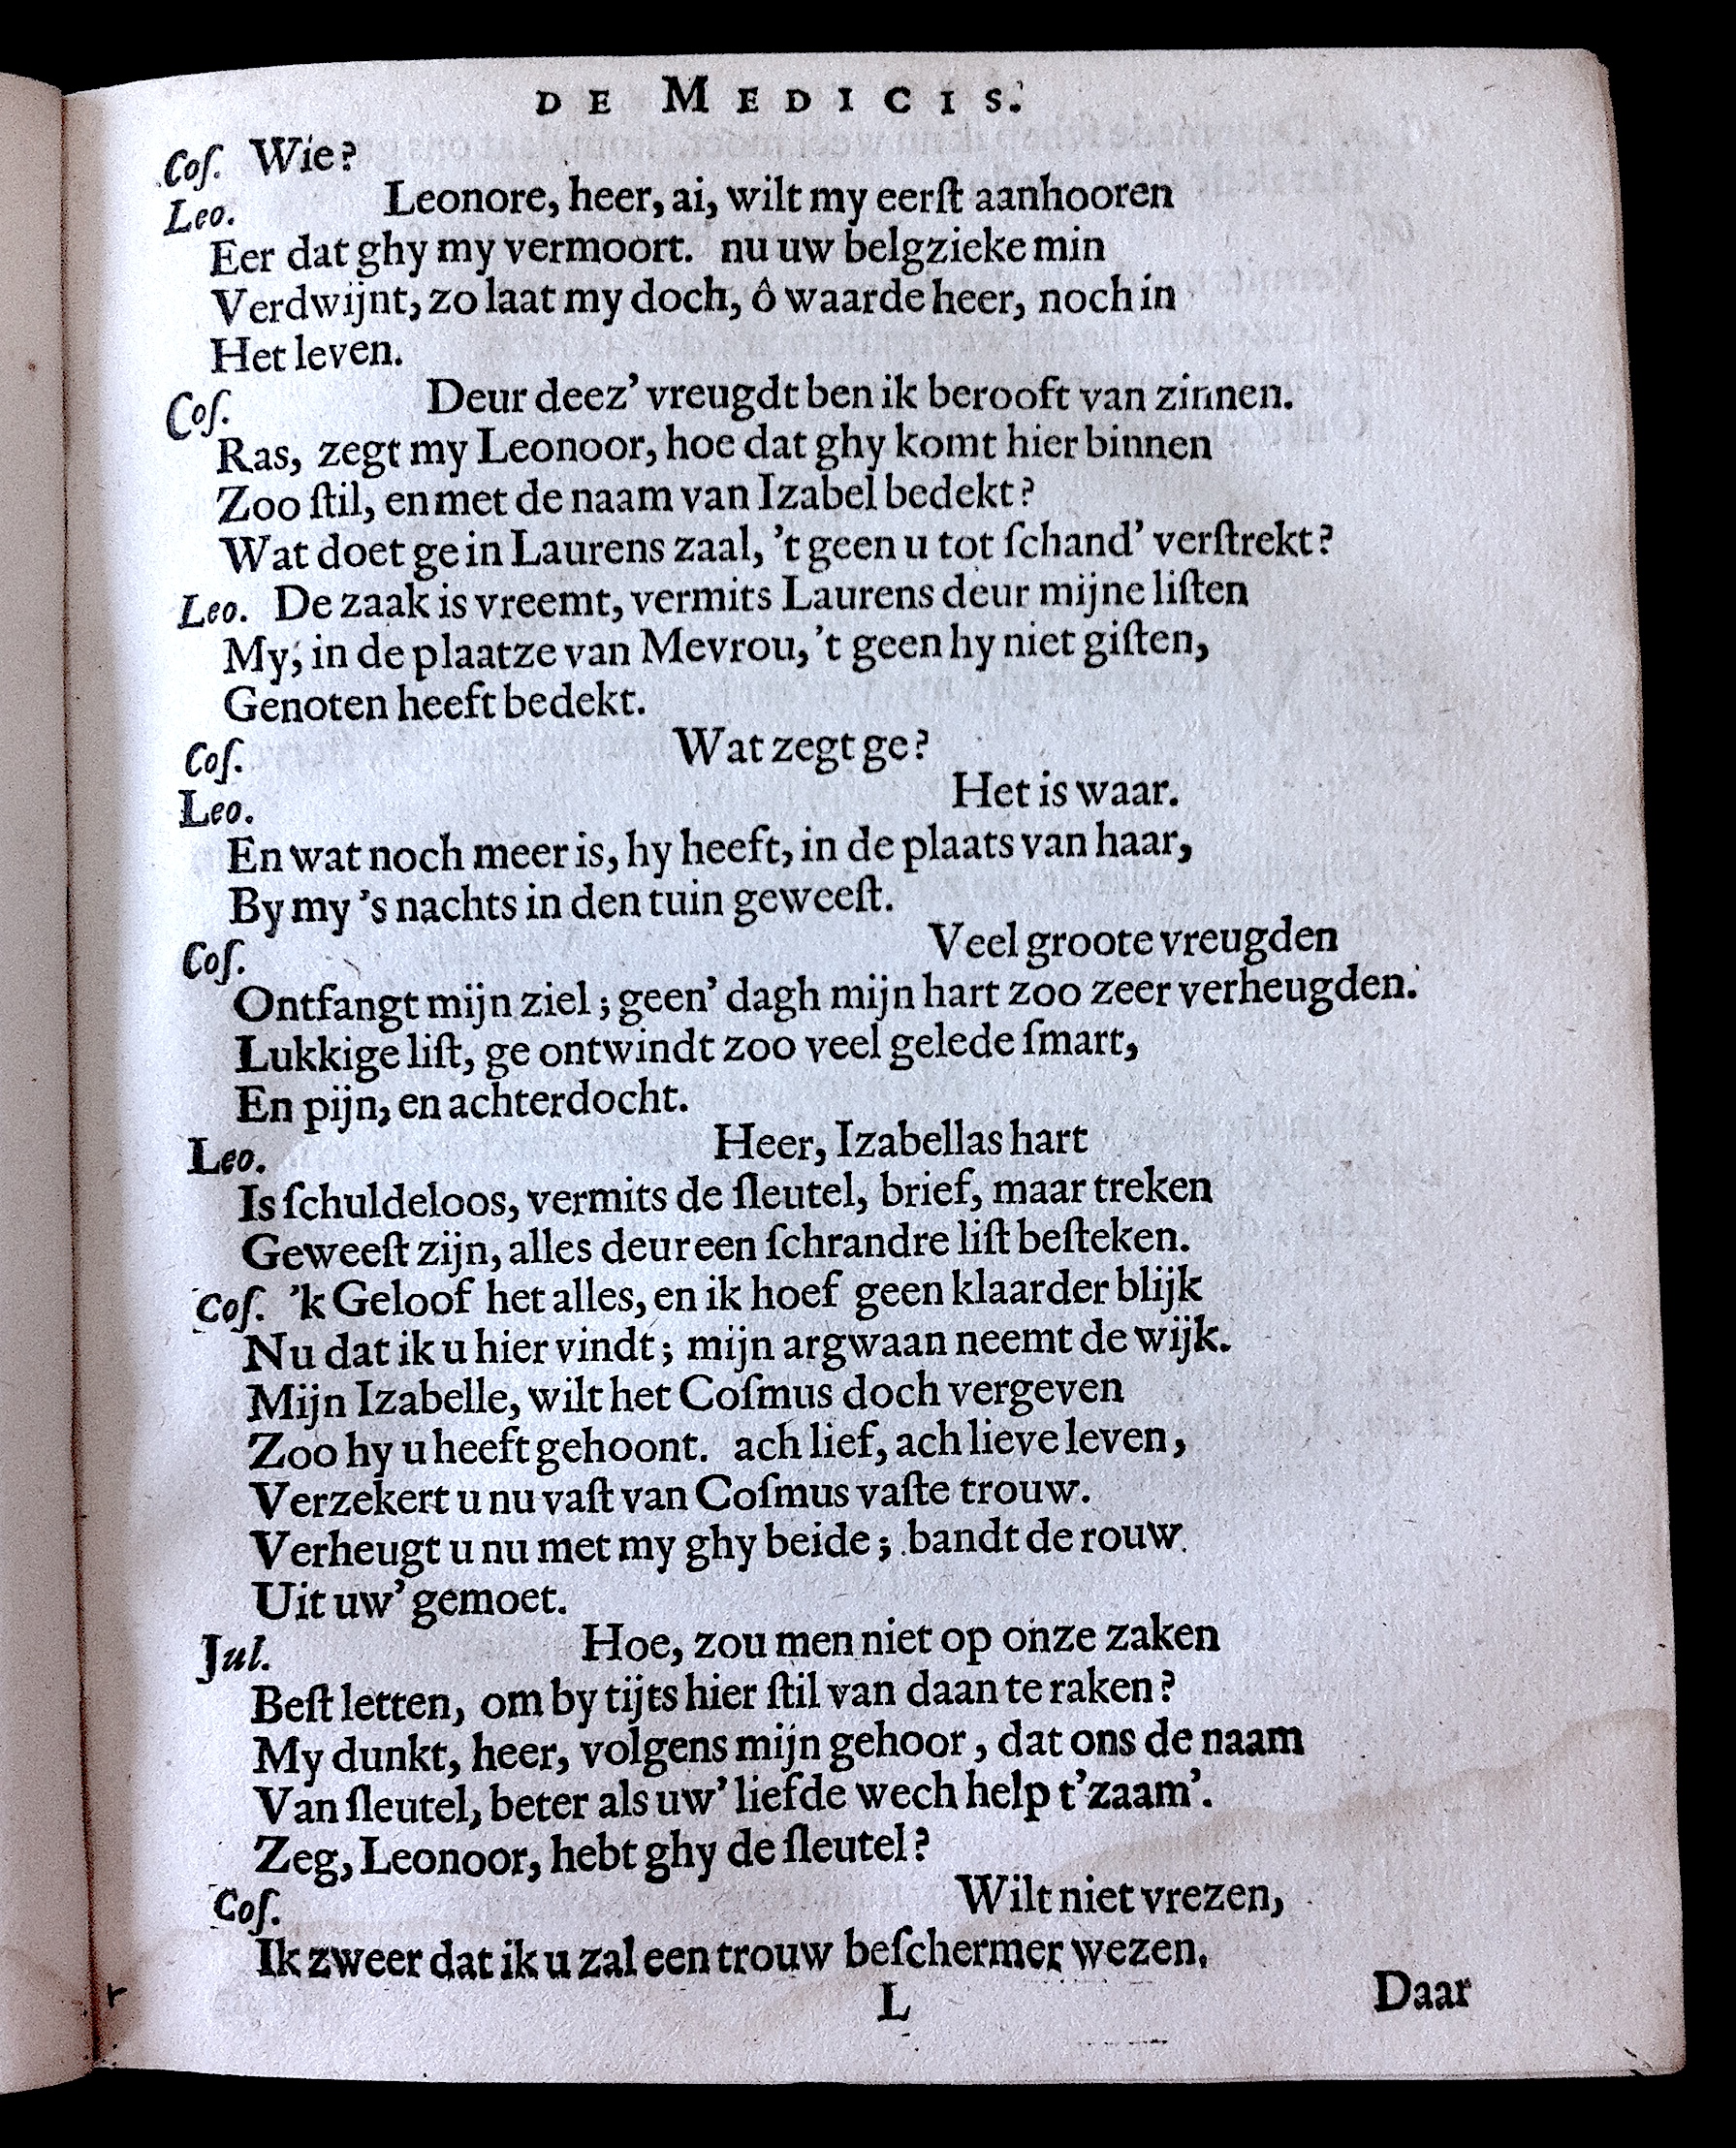 DE MEDICIS.
Coſ. Wie?
Leo. Leonore, heer, ai, wilt my eerſt aanhooren
Eer dat ghy my vermoort. nu uw belgzieke min
Verdwijnt, zo laat my doch, ô waarde heer, noch in
Het leven.
Coſ. Deur deez' vreugdt ben ik berooft van zinnen.
Ras, zegt my Leonoor, hoe dat ghy komt hier binnen
Zoo ſtil, en met de naam van Izabel bedekt?
Wat doet ge in Laurens zaal, 't geen u tot ſchand' verſtrekt?
Leo. De zaak is vreemt, vermits Laurens deur mijne liſten
My, in de plaatze van Mevrou, 't geen hy niet giſten,
Genoten heeft bedekt.
Coſ. Wat zegt ge?
Leo. Het is waar.
En wat noch meer is, hy heeft, in de plaats van haar,
By my 's nachts in den tuin geweeſt.
Coſ. Veel groote vreugden
Ontfangt mijn ziel; geen' dagh mijn hart zoo zeer verheugden.
Lukkige liſt, ge ontwindt zoo veel gelede ſmart,
En pijn, en achterdocht.
Leo. Heer, Izabellas hart
Is ſchuldeloos, vermits de ſleutel, brief, maar treken
Geweeſt zijn, alles deur een ſchrandre liſt beſteken.
Coſ. 'k Geloof het alles, en ik hoef geen klaarder blijk
Nu dat ik u hier vindt; mijn argwaan neemt de wijk.
Mijn Izabelle, wilt het Coſmus doch vergeven
Zoo hy u heeft gehoont. ach lief, ach lieve leven,
Verzekert u nu vaſt van Coſmus vaſte trouw.
Verheugt u nu met my ghy beide; bandt de rouw
Uit uw' gemoet.
Jul. Hoe, zou men niet op onze zaken
Beſt letten, om by tijts hier ſtil van daan te raken?
My dunkt, heer, volgens mijn gehoor, dat ons de naam
Van ſleutel, beter als uw' liefde wech help t'zaam'.
Zeg, Leonoor, hebt ghy de ſleutel?
Coſ. Wilt niet vrezen,
Ik zweer dat ik u zal een trouw beſchermer wezen.
L Daar
r